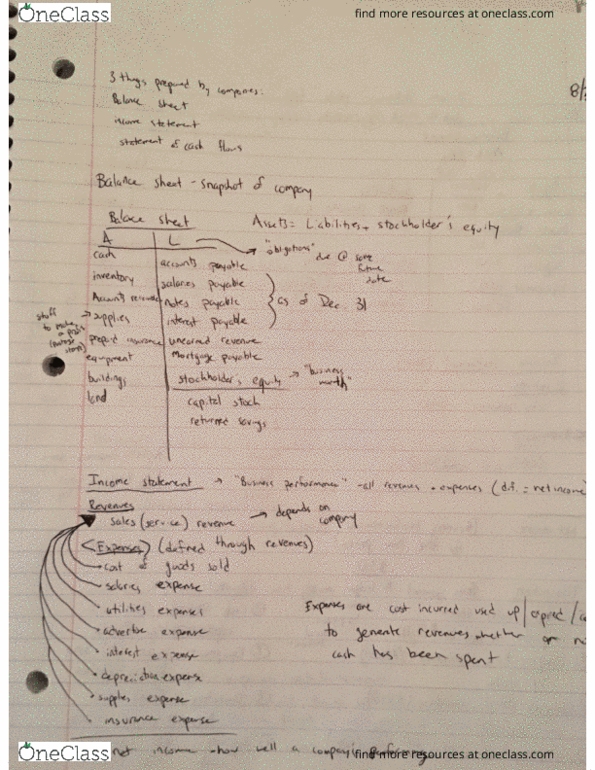 OneClass
find more resources at oneclass.com
3 things prepared by companies:
Balance sheet
income statement
statement of cash flows
8/
Balance sheet - snapshot of company
Balance sheet
Assets = Liabilities + stockholder's equity
A L → "obligations" due @ some future date
cash
inventory
Accounts
supplies
prepaid insurance
equipment
buildings
land
stuff to make a profit
accounts payable
salaries payable
notes payable
interest payable
as of Dec 31
unearned revenue
Mortgage payable
stockholders equity → "business worth"
capital stock
Income statement → "Business performance" - all revenues - expenses (dif. = net income
Revenues
sales (service) revenue → depends on company
<Expenses> (defined through revenues)
cost of goods sold
salaries expense
utilities expenses
advertise expense
interest expense
depreciation expense
supplies expense
insurance expense
Expenses are cost incurred used up/expired/
to generate revenues whether or
cash has been spent
net income - how well a company is performing
OneClass
find more resources at oneclass.com